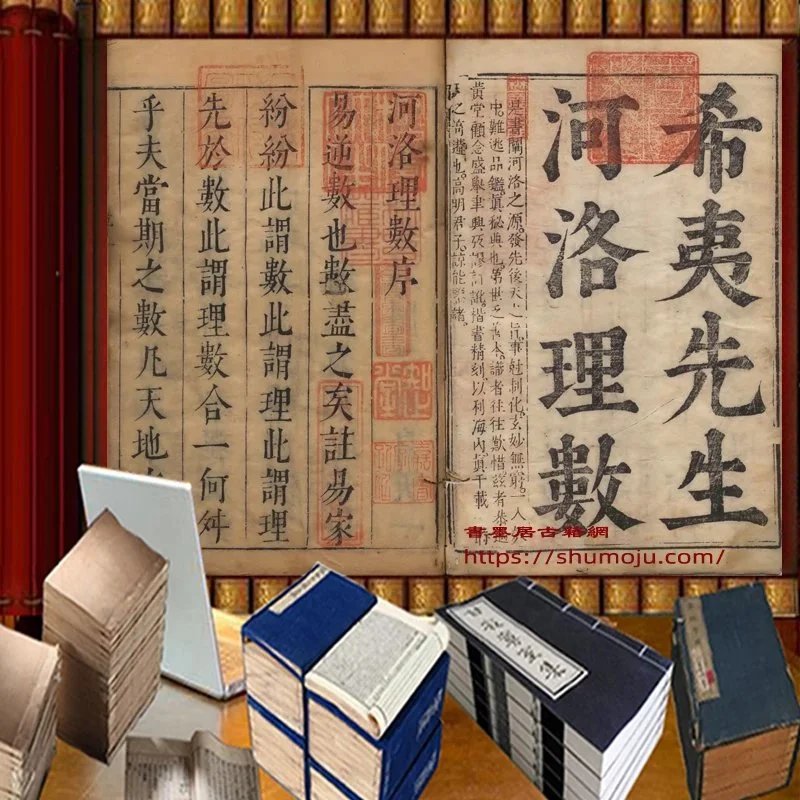 希夷先生
河洛理數
是書闡河洛之源發先後天之無窮一人
中難逃品鑑眞秘典也第世乏善本諦者往往歎惜茲者
黃堂願念盛舉聿興訂訛楷書精刻以利海內眞千載一時
之奇遘也高明君子諒能諸
河洛理數序
易逆數也數盡之矣註易家
紛紛此謂數此謂理此謂理
先於數此謂理數合一何舛
乎夫當期之數凡天地
書墨居古籍網
https://shumoju.com/